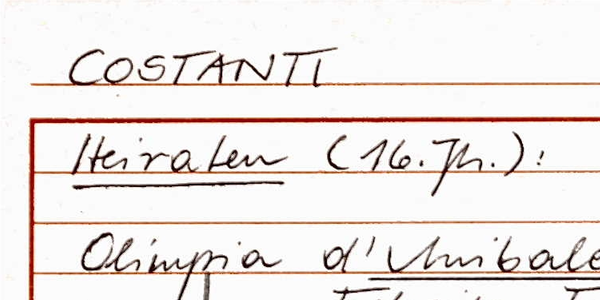 COSTANTI
Heiraten (16. Jh.):
Olimpia d'Annibale